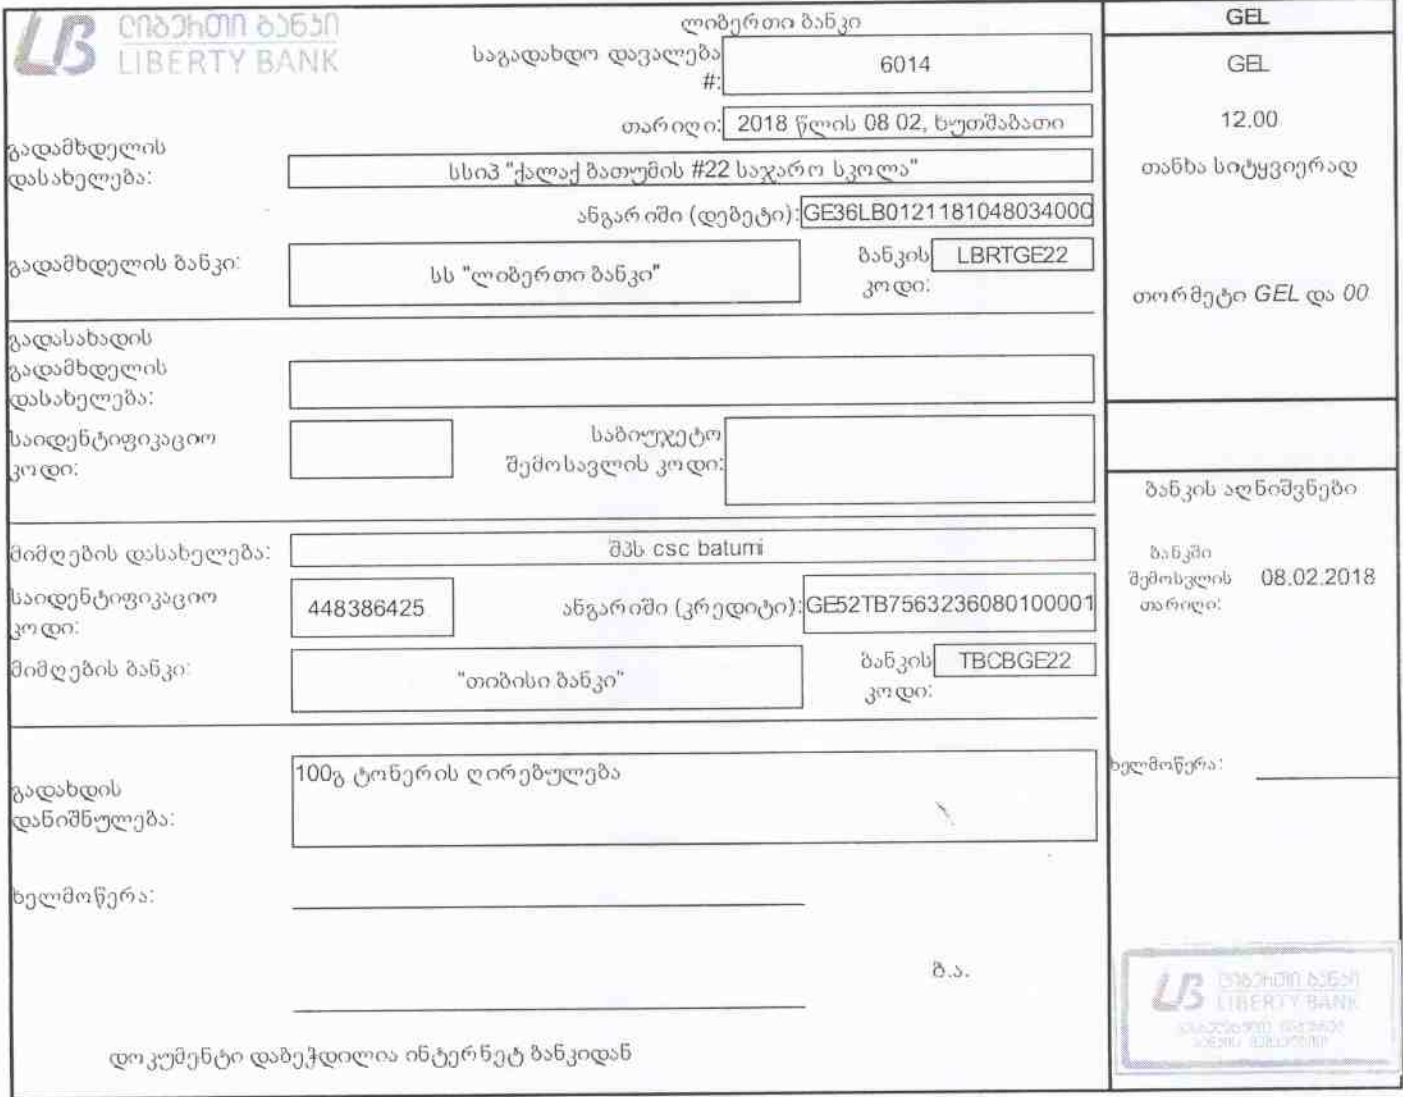 ლიბერთი ბანკი
LIBERTY BANK
ლიბერთი ბანკი
საგადახდო დავალება #: 6014
თარიღი: 2018 წლის 08 02, ხუთშაბათი
გადამხდელის დასახელება: სსიპ "ქალაქ ბათუმის #22 საჯარო სკოლა"
ანგარიში (დებეტი): GE36LB0121181048034000
გადამხდელის ბანკი: სს "ლიბერთი ბანკი"
ბანკის კოდი: LBRTGE22
გადასახადის გადამხდელის დასახელება:
საიდენტიფიკაციო კოდი:
საბიუჯეტო შემოსავლის კოდი:
მიმღების დასახელება: შპს csc batumi
საიდენტიფიკაციო კოდი: 448386425
ანგარიში (კრედიტი): GE52TB7563236080100001
მიმღების ბანკი: "თიბისი ბანკი"
ბანკის კოდი: TBCBGE22
გადახდის დანიშნულება: 100გ ტონერის ღირებულება
ხელმოწერა:
ბ.ა.
დოკუმენტი დაბეჭდილია ინტერნეტ ბანკიდან
GEL
GEL
12.00
თანხა სიტყვიერად
თორმეტი GEL და 00
ბანკის აღნიშვნები
ბანკში შემოსვლის თარიღი: 08.02.2018
ხელმოწერა:
ლიბერთი ბანკი
LIBERTY BANK